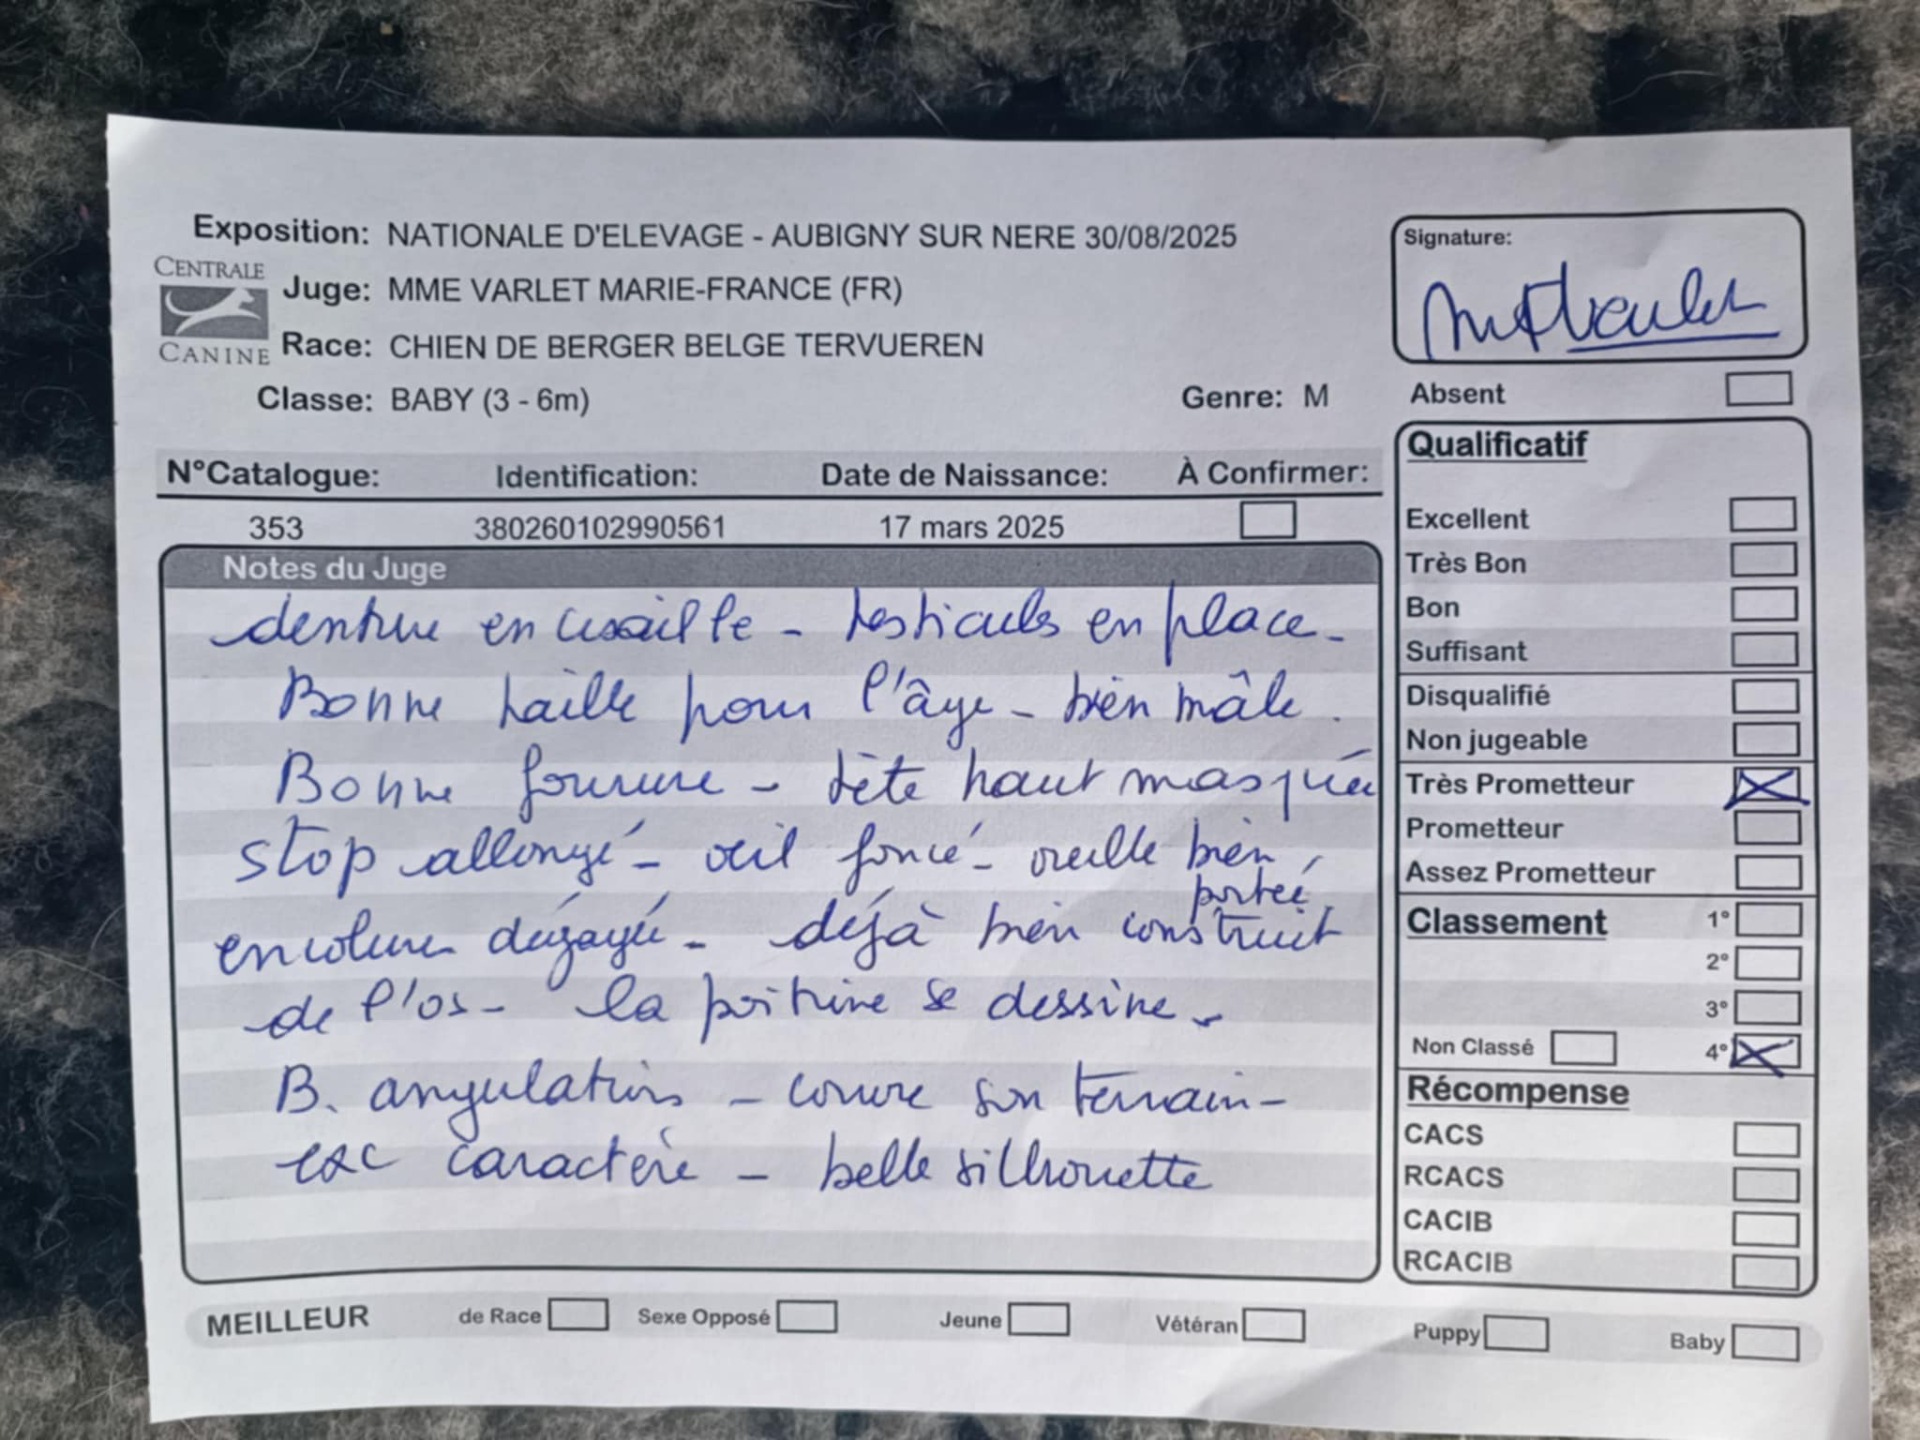 Exposition: NATIONALE D'ELEVAGE - AUBIGNY SUR NERE 30/08/2025
CENTRALE
CANINE
Juge: MME VARLET MARIE-FRANCE (FR)
Race: CHIEN DE BERGER BELGE TERVUEREN
Classe: BABY (3 - 6m) Genre: M
Signature:
Absent
N°Catalogue: Identification: Date de Naissance: À Confirmer:
353 380260102990561 17 mars 2025
Notes du Juge
denture en cisaille - testicules en place -
Bonne taille pour l'âge - bien mâle.
Bonne fourrure - tête haut masquée
stop allongé - œil foncé - oreille bien
portée
encolure dégagée - déjà bien construit
de l'os - la poitrine se dessine -
B. angulations - couvre son terrain -
exc caractère - belle silhouette
Qualificatif
Excellent
Très Bon
Bon
Suffisant
Disqualifié
Non jugeable
Très Prometteur
Prometteur
Assez Prometteur
Classement 1°
2°
3°
Non Classé 4°
Récompense
CACS
RCACS
CACIB
RCACIB
MEILLEUR de Race Sexe Opposé Jeune Vétéran Puppy Baby